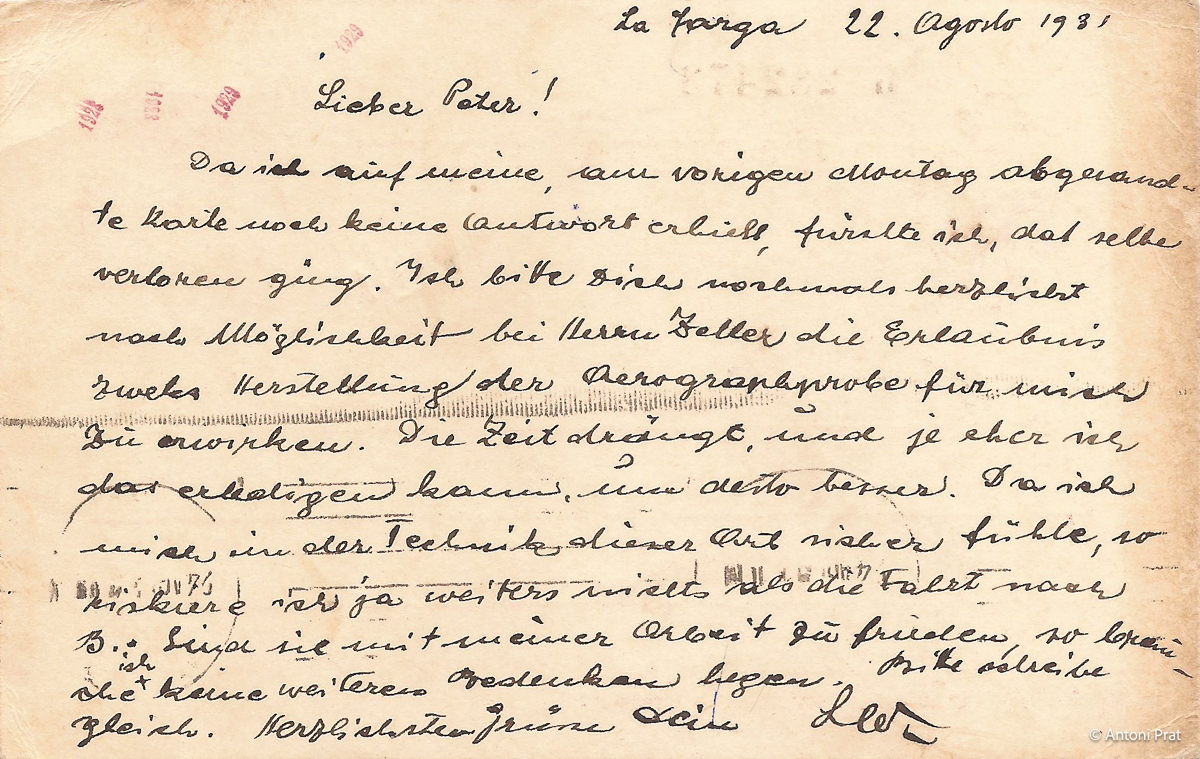 La Farga 22. Agosto 1931
1929
1929
Lieber Peter!
Da ich auf meine, am vorigen Montag abgesand-
te Karte noch keine Antwort erhielt, fürchte ich, daß selbe
verloren ging. Ich bitte Dich nochmals herzlichst
nach Möglichkeit bei Herrn Zeller die Erlaubnis
zweks Herstellung der Aerographprobe für mich
zu erwirken. Die Zeit drängt, und je eher ich
das erledigen kann, um desto besser. Da ich
mich in der Technik dieser Art sicher fühle, so
riskiere ich ja weiters nichts als die Fahrt nach
B.. Sind sie mit meiner Arbeit zu frieden, so brau-
che ich keine weiteren Bedenken hegen. Bitte schreibe
gleich. Herzlichsten Grüsse dein
© Antoni Prat